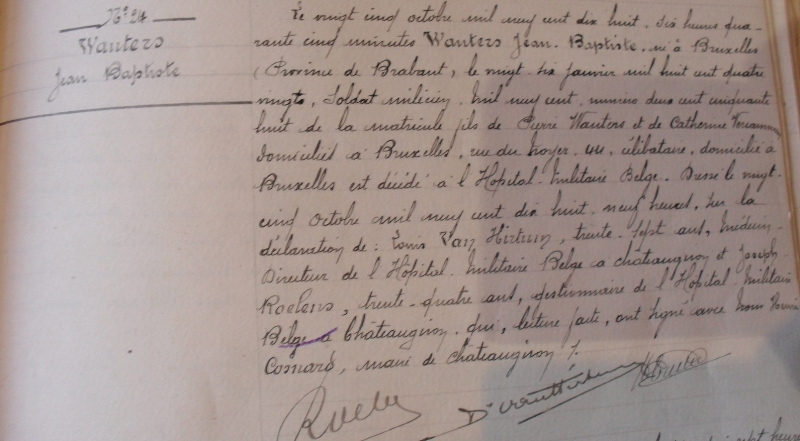 N° 24
Wauters
Jean Baptiste
Le vingt cinq octobre mil neuf cent dix huit. six heures qua-
rante cinq minutes Wauters Jean-Baptiste, né à Bruxelles
(Province de Brabant, le vingt-six janvier mil huit cent quatre
vingts, Soldat milicien. Mil neuf cent, numéro deux cent cinquante
huit de la matricule fils de Pierre Wauters et de Catherine
domiciliés à Bruxelles, rue du noyer. 44. célibataire, domicilié à
Bruxelles est décédé à l'Hôpital-Militaire Belge. Dressé le vingt-
cinq octobre mil neuf cent dix huit. neuf heures, sur la
déclaration de: Louis Van Hirtum, trente-sept ans, Médecin-
Directeur de l'Hôpital-Militaire Belge à châteaugiron et Joseph
Roelens, trente-quatre ans, gestionnaire de l'Hôpital-Militaire
Belge à Châteaugiron. qui, lecture faite, ont signé avec Nous
maire de châteaugiron ./.